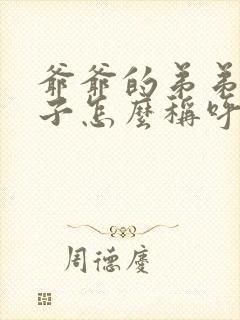 爺爺的弟弟
子怎麽稱呼
周德慶